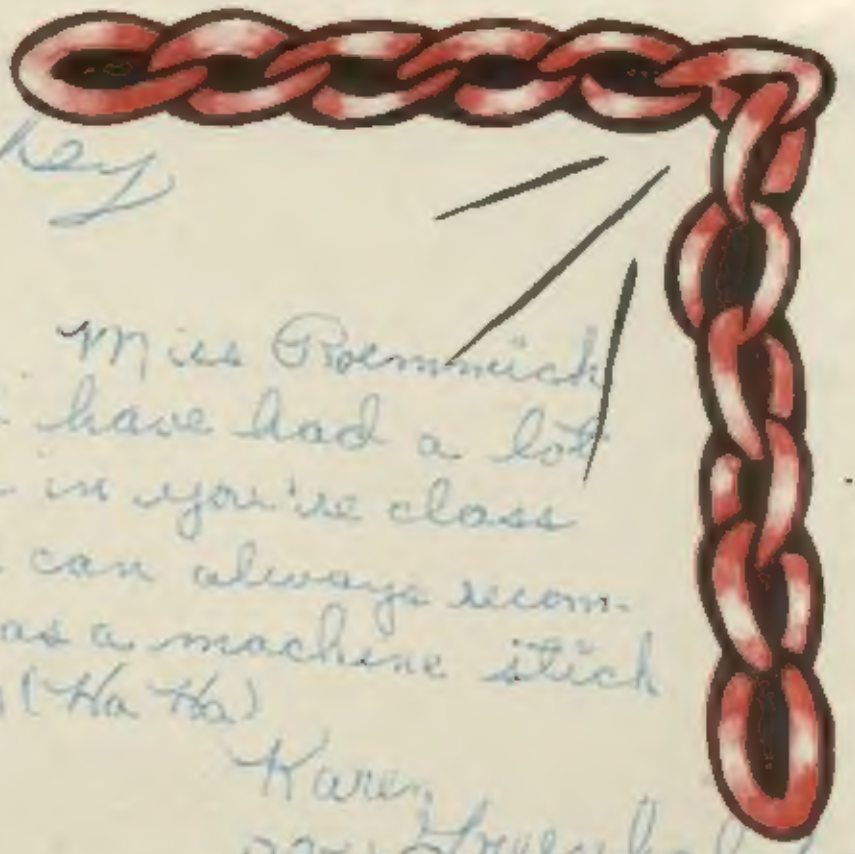 Miss Roemmich
have had a lot
in you're class
can always recom-
as a machine stich
(Ha Ha)
Karen